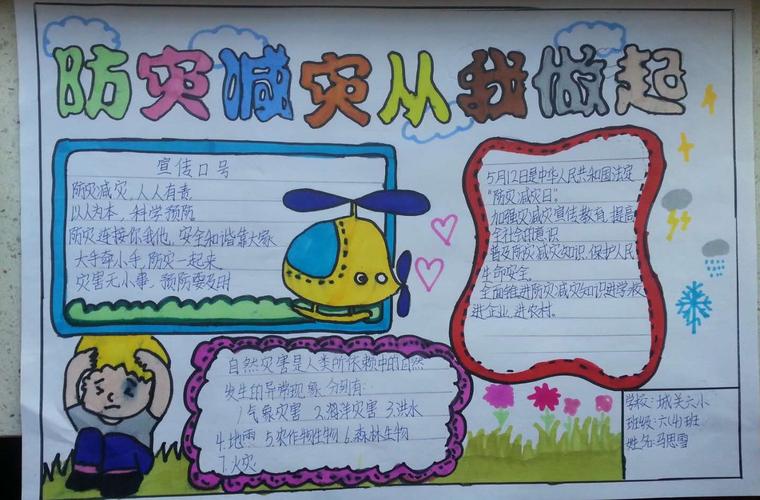 防灾减灾从我做起
宣传口号
防灾减灾，人人有责
以人为本，科学预防
防灾连接你我他，安全和谐靠大家
大手牵小手，防灾一起来
灾害无小事，预防要及时
5月12日是中华人民共和国法定
"防灾减灾日"。
加强灾减灾宣传教育，提高
全社会的意识
普及防灾减灾知识，保护人民
生命安全
全面推进防灾减灾知识进学校
进企业，进农村。
自然灾害是人类所依赖中的自然
发生的异常现象，分别有：
1.气象灾害 2.海洋灾害 3.洪水
4.地雨 5.农作物生物 6.森林生物
7.火灾
学校：城关六小
班级：六(4)班
姓名：马思雪